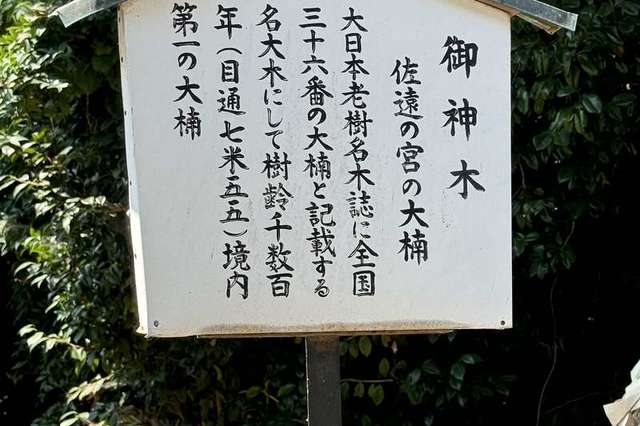 御神木
佐遠の宮の大楠
大日本老樹名木誌に全国
三十六番の大楠と記載する
名大木にして樹齢千数百
年(目通七米五五)境内
第一の大楠